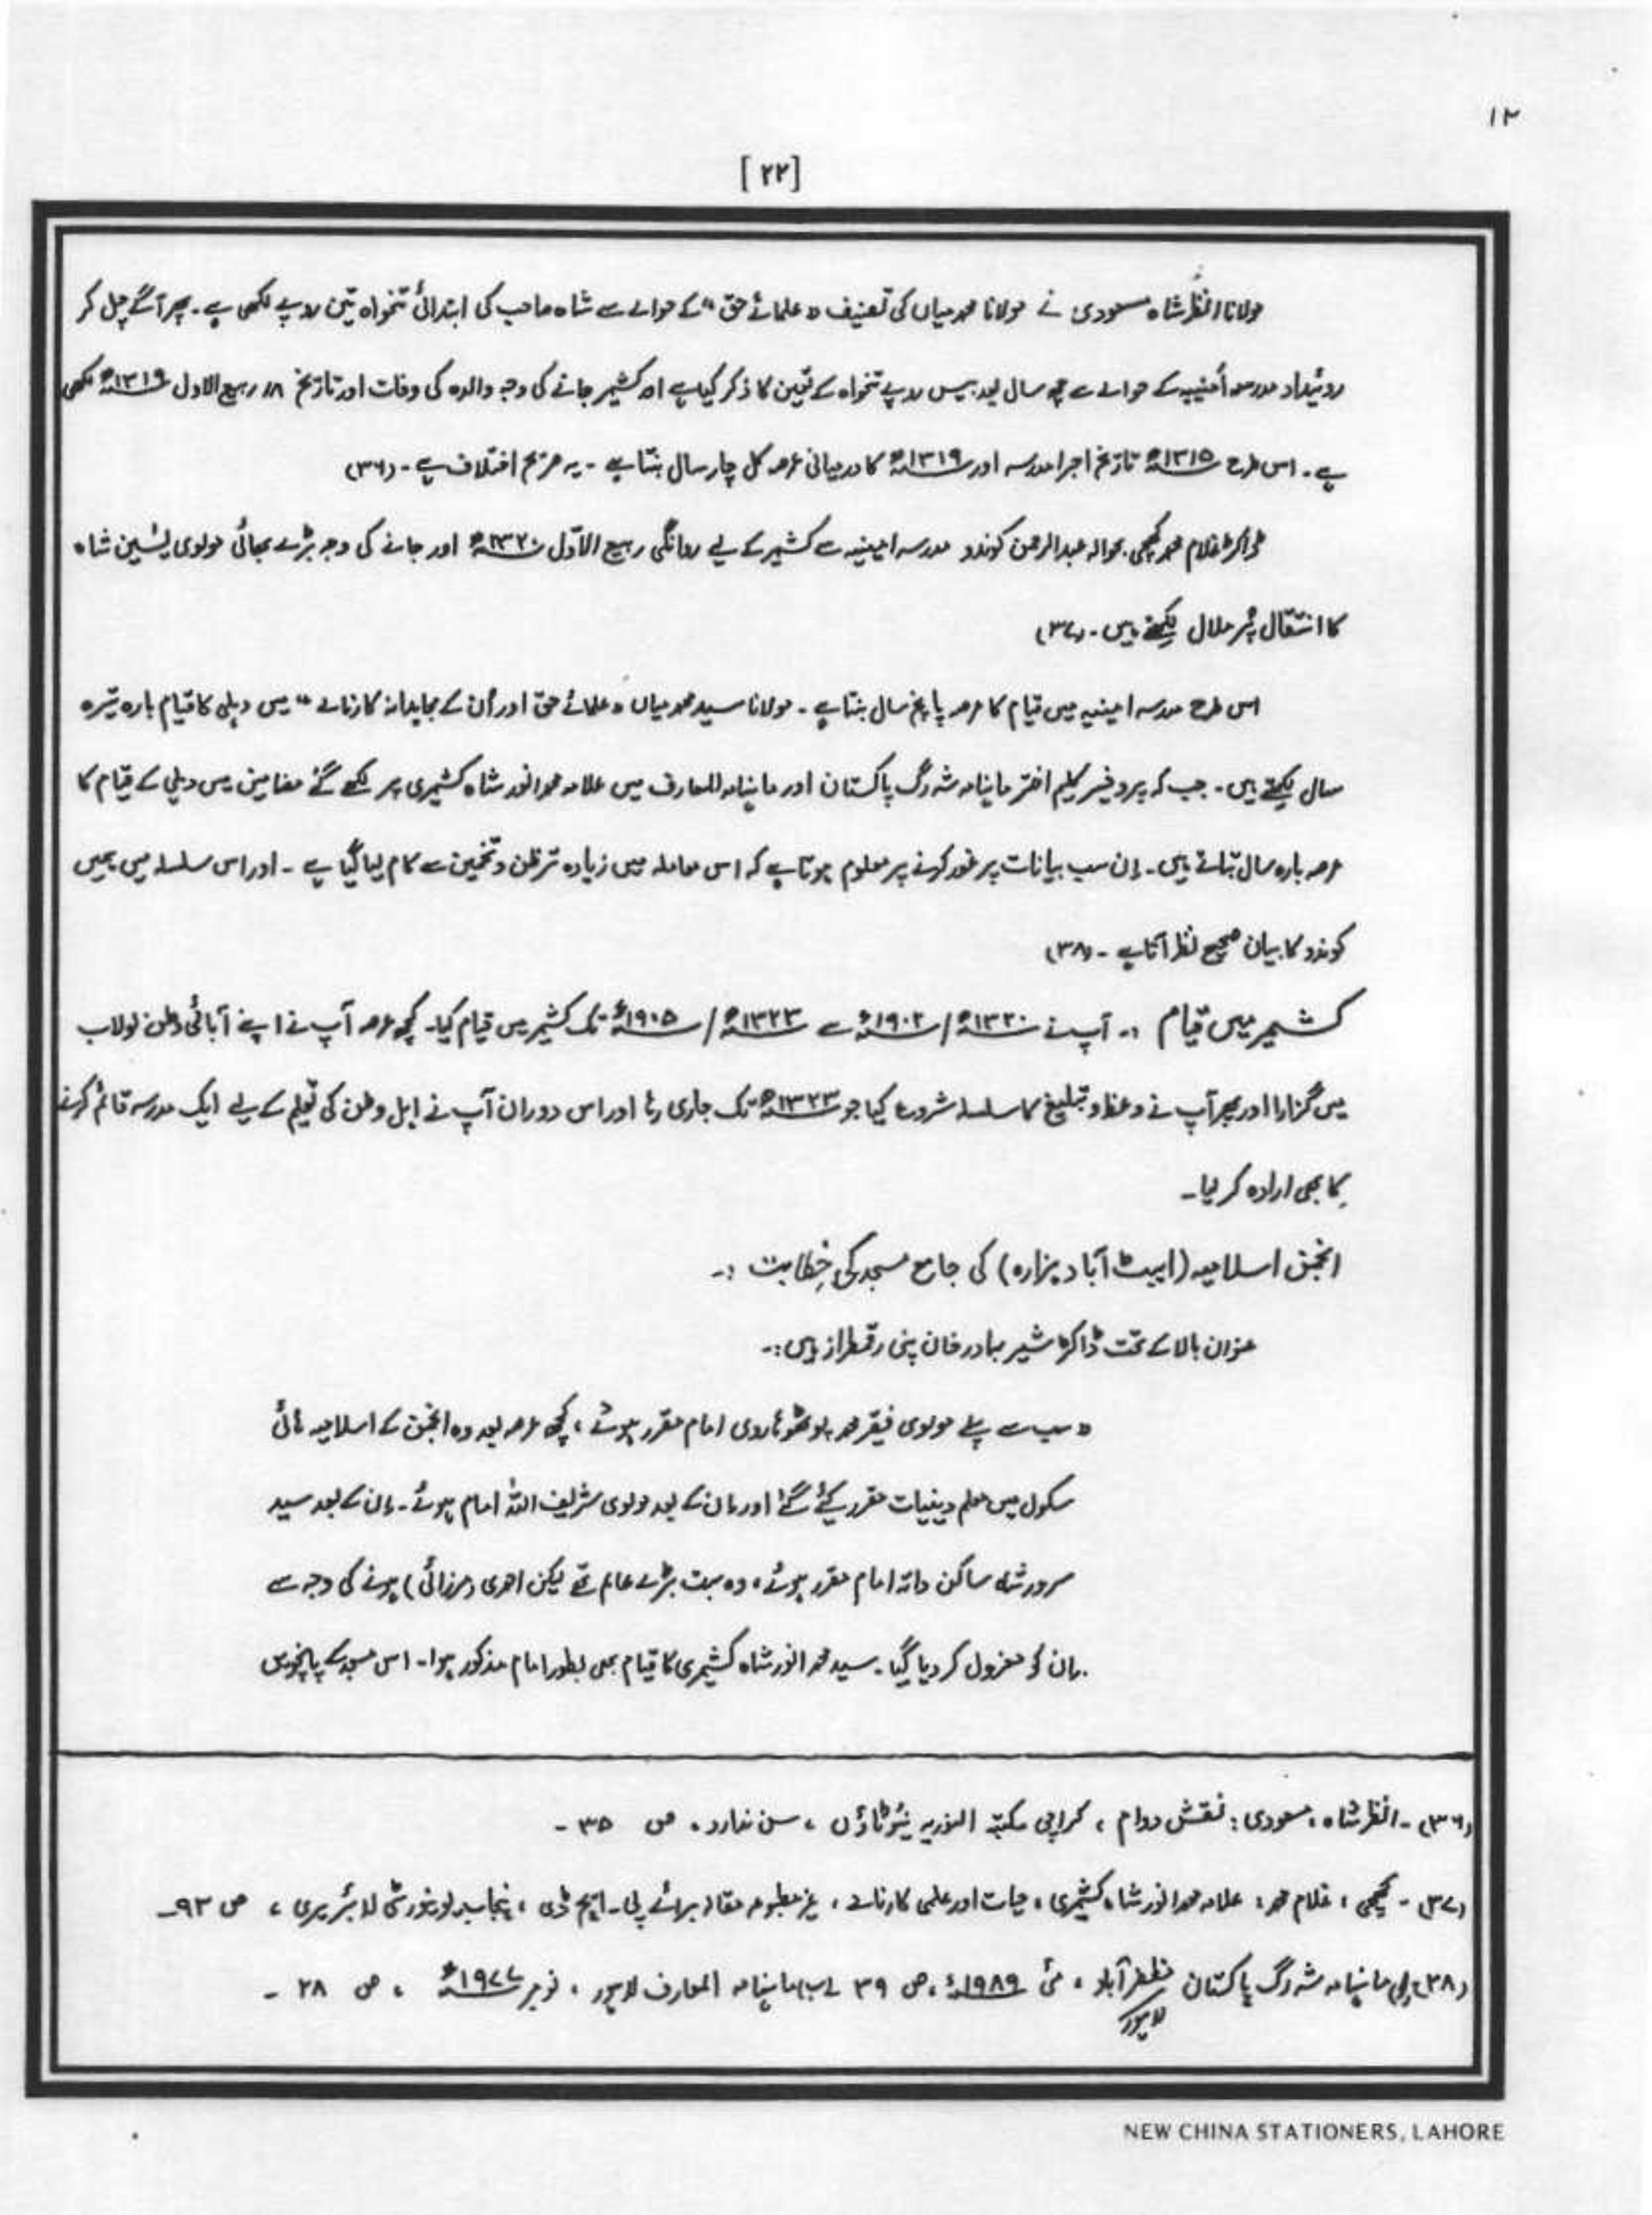 ۱۲
[۲۲]
مولانا انظر شاہ مسعودی نے مولانا محمد میاں کی تصنیف "علمائے حق" کے حوالے سے شاہ صاحب کی ابتدائی تنخواہ تین روپے لکھی ہے۔ پھر آگے چل کر
روئیداد مدرسہ امینیہ کے حوالے سے چھ سال بعد بیس روپے تنخواہ کے تعین کا ذکر کیا ہے اور کشمیر جانے کی وجہ والدہ کی وفات اور تاریخ ۱۸ ربیع الاول ۱۳۱۹ھ لکھی
ہے۔ اس طرح ۱۳۱۵ھ تاریخ اجرا مدرسہ اور ۱۳۱۹ھ کا درمیانی عرصہ کل چار سال بنتا ہے۔ یہ صریح اختلاف ہے۔ (۳۶)
ڈاکٹر غلام محمد کھچی بحوالہ عبدالرحمن کوندو مدرسہ امینیہ سے کشمیر کے لیے روانگی ربیع الاوّل ۱۳۲۰ھ اور جانے کی وجہ بڑے بھائی مولوی یٰسین شاہ
کا انتقال پُر ملال لکھتے ہیں۔ (۳۷)
اس طرح مدرسہ امینیہ میں قیام کا عرصہ پانچ سال بنتا ہے۔ مولانا سید محمد میاں "علمائے حق اور اُن کے مجاہدانہ کارنامے" میں دہلی کا قیام بارہ تیرہ
سال لکھتے ہیں۔ جب کہ پروفیسر کلیم اختر ماہنامہ شہ رگ پاکستان اور ماہنامہ المعارف میں علامہ محمد انور شاہ کشمیری پر لکھے گئے مضامین میں دہلی کے قیام کا
عرصہ بارہ سال بتاتے ہیں۔ اِن سب بیانات پر غور کرنے پر معلوم ہوتا ہے کہ اس معاملہ میں زیادہ تر ظن و تخمین سے کام لیا گیا ہے۔ اور اس سلسلہ میں ہمیں
کوندو کا بیان صحیح نظر آتا ہے۔ (۳۸)
کشمیر میں قیام :۔ آپ نے ۱۳۲۰ھ/۱۹۰۲ء سے ۱۳۲۳ھ/۱۹۰۵ء تک کشمیر میں قیام کیا۔ کچھ عرصہ آپ نے اپنے آبائی وطن لولاب
میں گزارا اور پھر آپ نے وعظ و تبلیغ کا سلسلہ شروع کیا جو ۱۳۲۳ھ تک جاری رہا اور اس دوران آپ نے اہل وطن کی تعلیم کے لیے ایک مدرسہ قائم کرنے
کا بھی ارادہ کر لیا۔
انجمن اسلامیہ (ایبٹ آباد ہزارہ) کی جامع مسجد کی خطابت :۔
عنوان بالا کے تحت ڈاکٹر شیر بہادر خان پنی رقمطراز ہیں:۔
"سب سے پہلے مولوی فقیر محمد پوٹھوہاروی امام مقرر ہوئے، کچھ عرصہ بعد وہ انجمن کے اسلامیہ ہائی
سکول میں معلم دینیات مقرر کیئے گئے اور ان کے بعد مولوی شریف اللہ امام ہوئے۔ ان کے بعد سید
سرور شاہ ساکن داتہ امام مقرر ہوئے، وہ بہت بڑے عالم تھے لیکن احمدی (مرزائی) ہونے کی وجہ سے
ان کو معزول کر دیا گیا۔ سید محمد انور شاہ کشمیری کا قیام بھی بطور امام مذکور ہوا۔ اس مسجد کے پانچویں
(۳۶)۔ انظر شاہ، مسعودی: نقش دوام، کراچی مکتبۃ النوریہ نیو ٹاؤن، سن ندارد، ص ۳۵۔
(۳۷)۔ کھچی، غلام محمد: علامہ محمد انور شاہ کشمیری، حیات اور علمی کارنامے، غیر مطبوعہ مقالہ برائے پی۔ایچ ڈی، پنجاب یونیورسٹی لائبریری، ص ۹۳۔
(۳۸) ماہنامہ شہ رگ پاکستان مظفر آباد، مئی ۱۹۸۹ء، ص ۳۹ (ب) ماہنامہ المعارف لاہور، نومبر ۱۹۷۷ء، ص ۲۸۔
لاہور
NEW CHINA STATIONERS, LAHORE